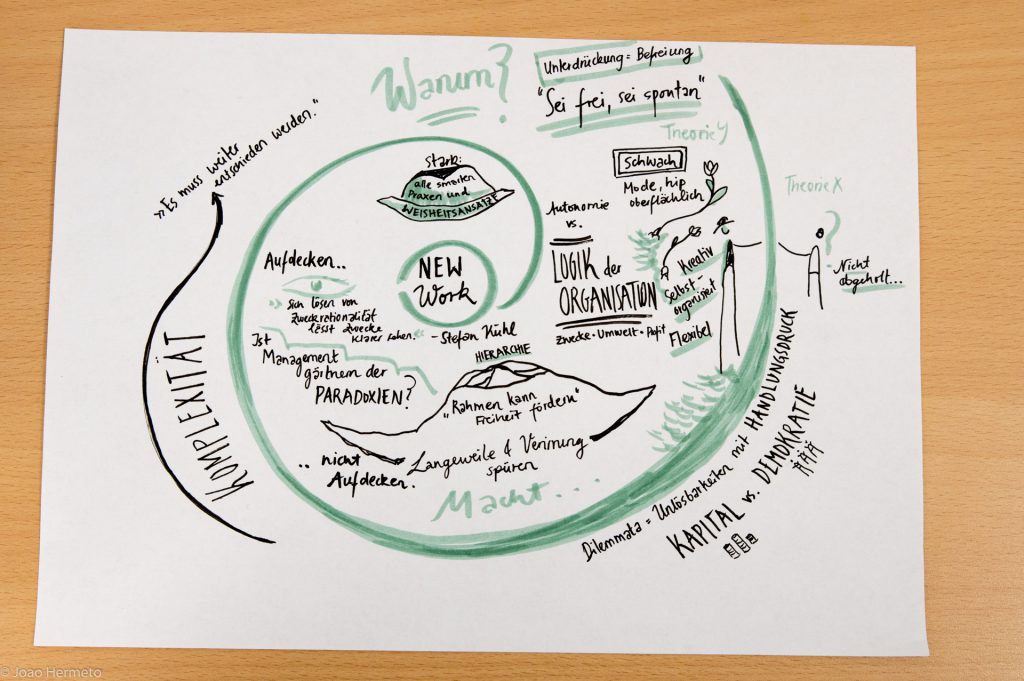 Warum?
Unterdrückung = Befreiung
"Sei frei, sei spontan"
Theorie Y
Theorie X
»Es muss weiter
entschieden werden."
KOMPLEXITÄT
Stark:
alle smarten
Praxen und
WEISHEITSANSÄTZE
NEW
Work
- Stefan Kühl
Aufdecken..
» Sich lösen von
Zweckrationalität
lässt Zwecke
klarer sehen. «
Ist
Management
gärtnern der
PARADOXIEN?
Schwach
Mode, hip
oberflächlich
Autonomie
vs.
LOGIK der
ORGANISATION
Zwecke · Umwelt · Profit
Kreativ
Selbst-
organisiert
Flexibel
Nicht
abgeholt...
HIERARCHIE
"Rahmen kann
Freiheit fördern"
.. nicht
Aufdecken.
Langeweile & Verirrung
spüren
Macht...
Dilemmata = Unlösbarkeiten mit HANDLUNGSDRUCK
KAPITAL vs. DEMOKRATIE
© Joao Hermeto